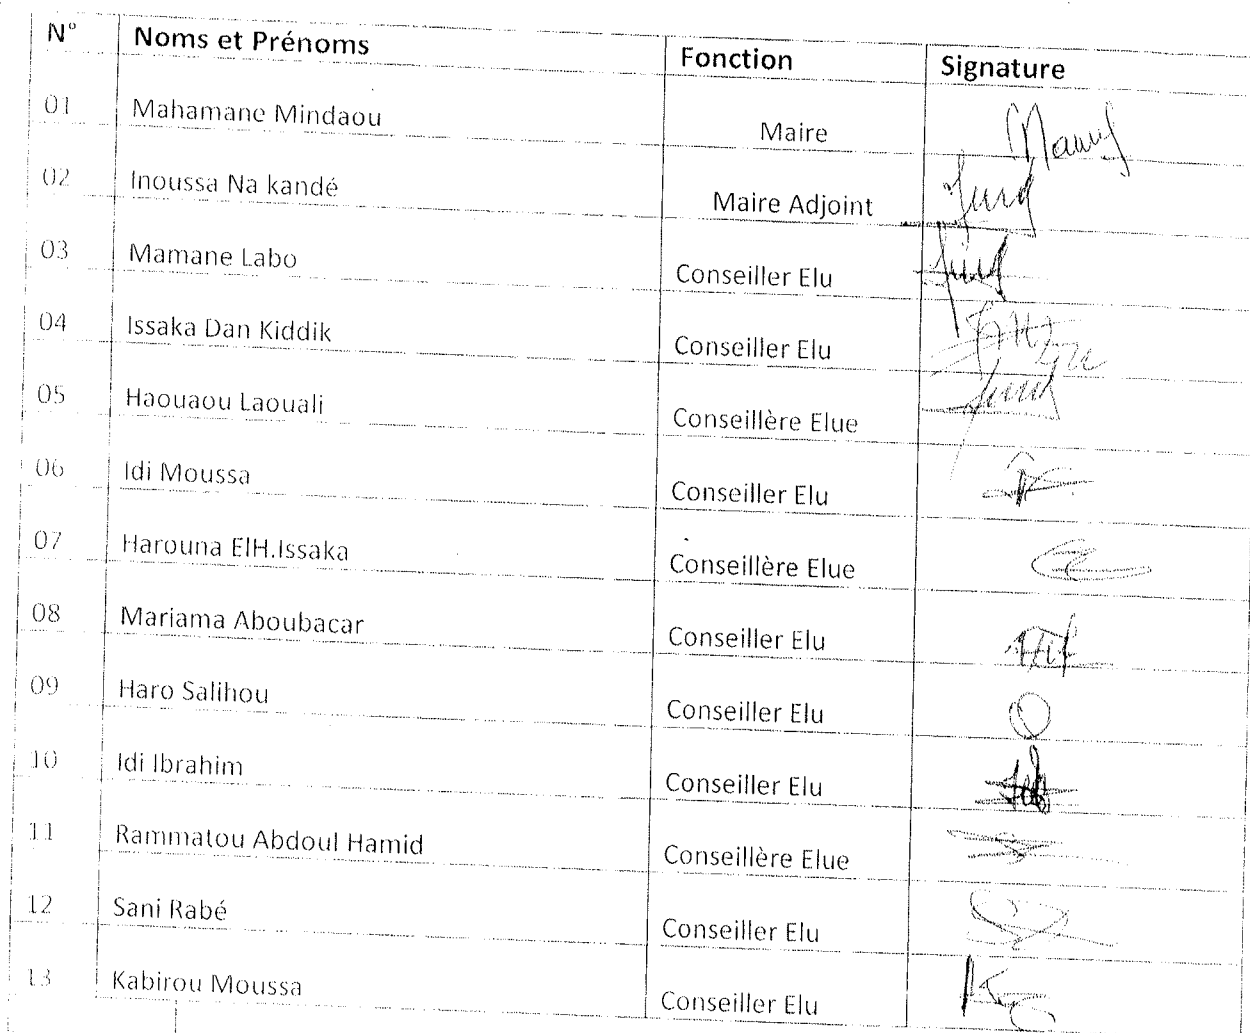 N° Noms et Prénoms Fonction Signature
01 Mahamane Mindaou Maire
02 Inoussa Na kandé Maire Adjoint
03 Mamane Labo Conseiller Elu
04 Issaka Dan Kiddik Conseiller Elu
05 Haouaou Laouali Conseillère Elue
06 Idi Moussa Conseiller Elu
07 Harouna ElH.Issaka Conseillère Elue
08 Mariama Aboubacar Conseiller Elu
09 Haro Salihou Conseiller Elu
10 Idi Ibrahim Conseiller Elu
11 Rammatou Abdoul Hamid Conseillère Elue
12 Sani Rabé Conseiller Elu
13 Kabirou Moussa Conseiller Elu